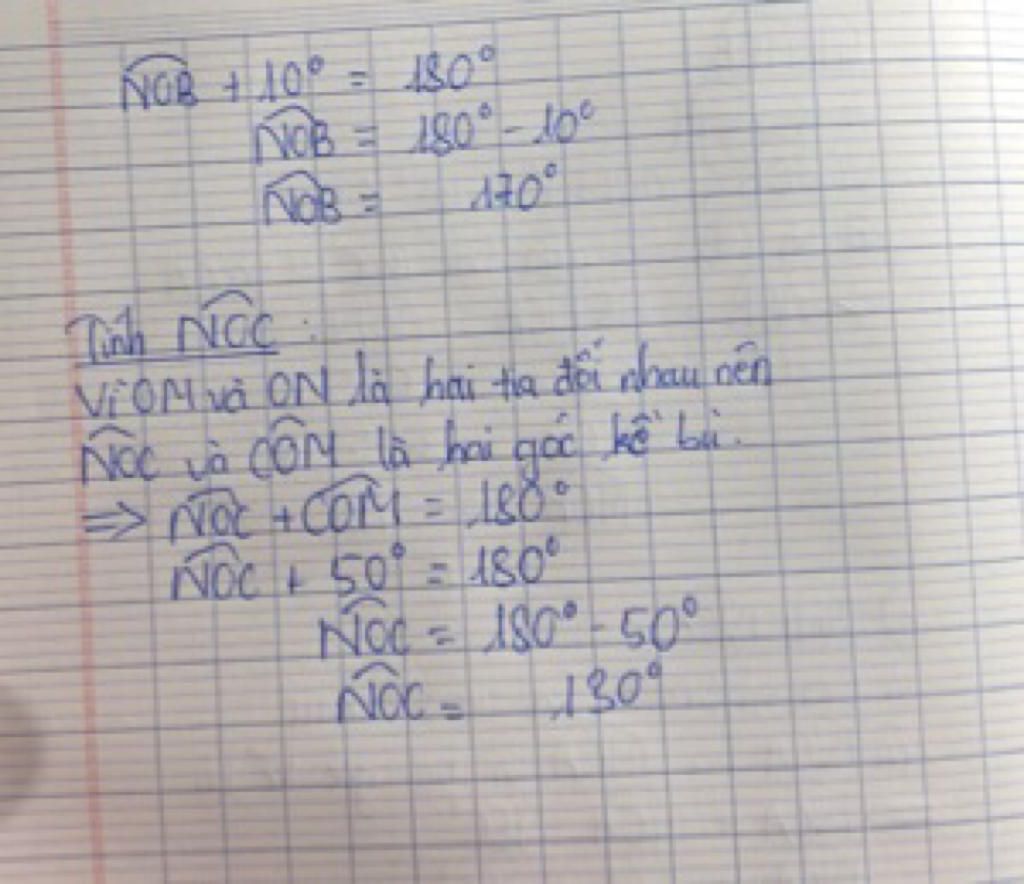 NOB + 10° = 180°
NOB = 180° - 10°
NOB = 170°
Tính NOC :
Vì OM và ON là hai tia đối nhau nên
NOC và COM là hai góc kề bù.
⇒ NOC + COM = 180°
NOC + 50° = 180°
NOC = 180° - 50°
NOC = 130°